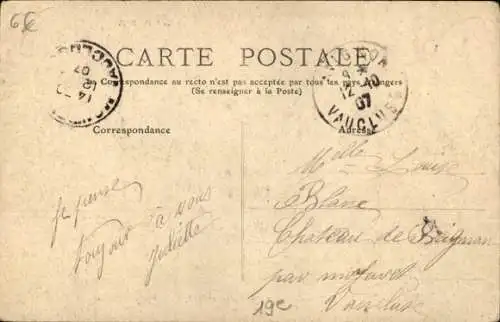 6€
CARTE POSTALE
La Correspondance au recto n'est pas acceptée par tous les pays étrangers
(Se renseigner à la Poste)
12 -10
07
VAUCLUSE
Correspondance
Adresse
Je pense
toujours à vous
Juliette
Melle Louise
Blanc
Château de
par
Vaucluse
19e